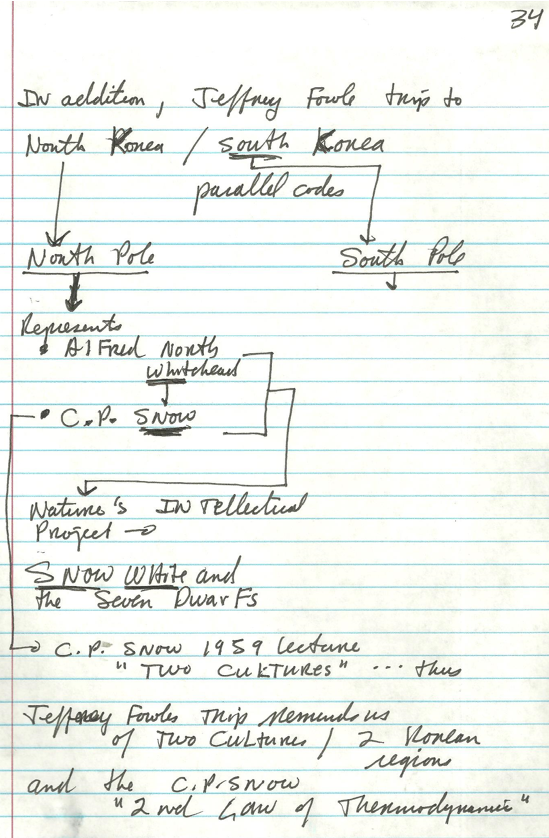 34
In addition, Jeffrey Fowle trip to
North Korea / South Korea
parallel codes
North Pole
South Pole
Represents
• Alfred North
Whitehead
• C.P. SNOW
Nature's INTellectual
Project →
SNOW White and
the Seven Dwarfs
→ C.P. SNOW 1959 lecture
"TWO CULTURES" ... thus
Jeffrey Fowles Trip reminds us
of TWO CULTURES / 2 Korean
regions
and the C.P. SNOW
"2nd Law of Thermodynamic"